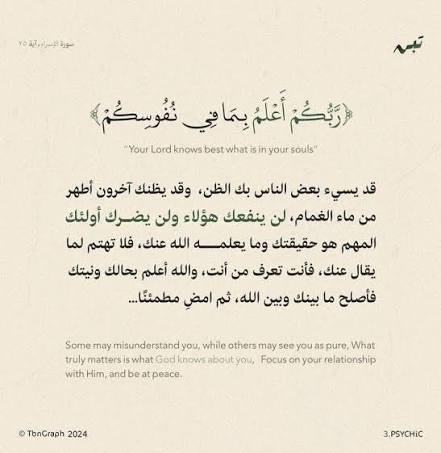 سورة الإسراء، آية ٢٥
تبين
﴿رَّبُّكُمْ أَعْلَمُ بِمَا فِي نُفُوسِكُمْ﴾
"Your Lord knows best what is in your souls"
قد يسيء بعض الناس بك الظن، وقد يظنك آخرون أطهر
من ماء الغمام، لن ينفعك هؤلاء ولن يضرك أولئك
المهم هو حقيقتك وما يعلمـــه الله عنك، فلا تهتم لما
يقال عنك، فأنت تعرف من أنت، والله أعلم بحالك ونيتك
فأصلح ما بينك وبين الله، ثم امضِ مطمئنًا...
Some may misunderstand you, while others may see you as pure, What
truly matters is what God knows about you, Focus on your relationship
with Him, and be at peace.
© TbnGraph 2024
3.PSYCHiC